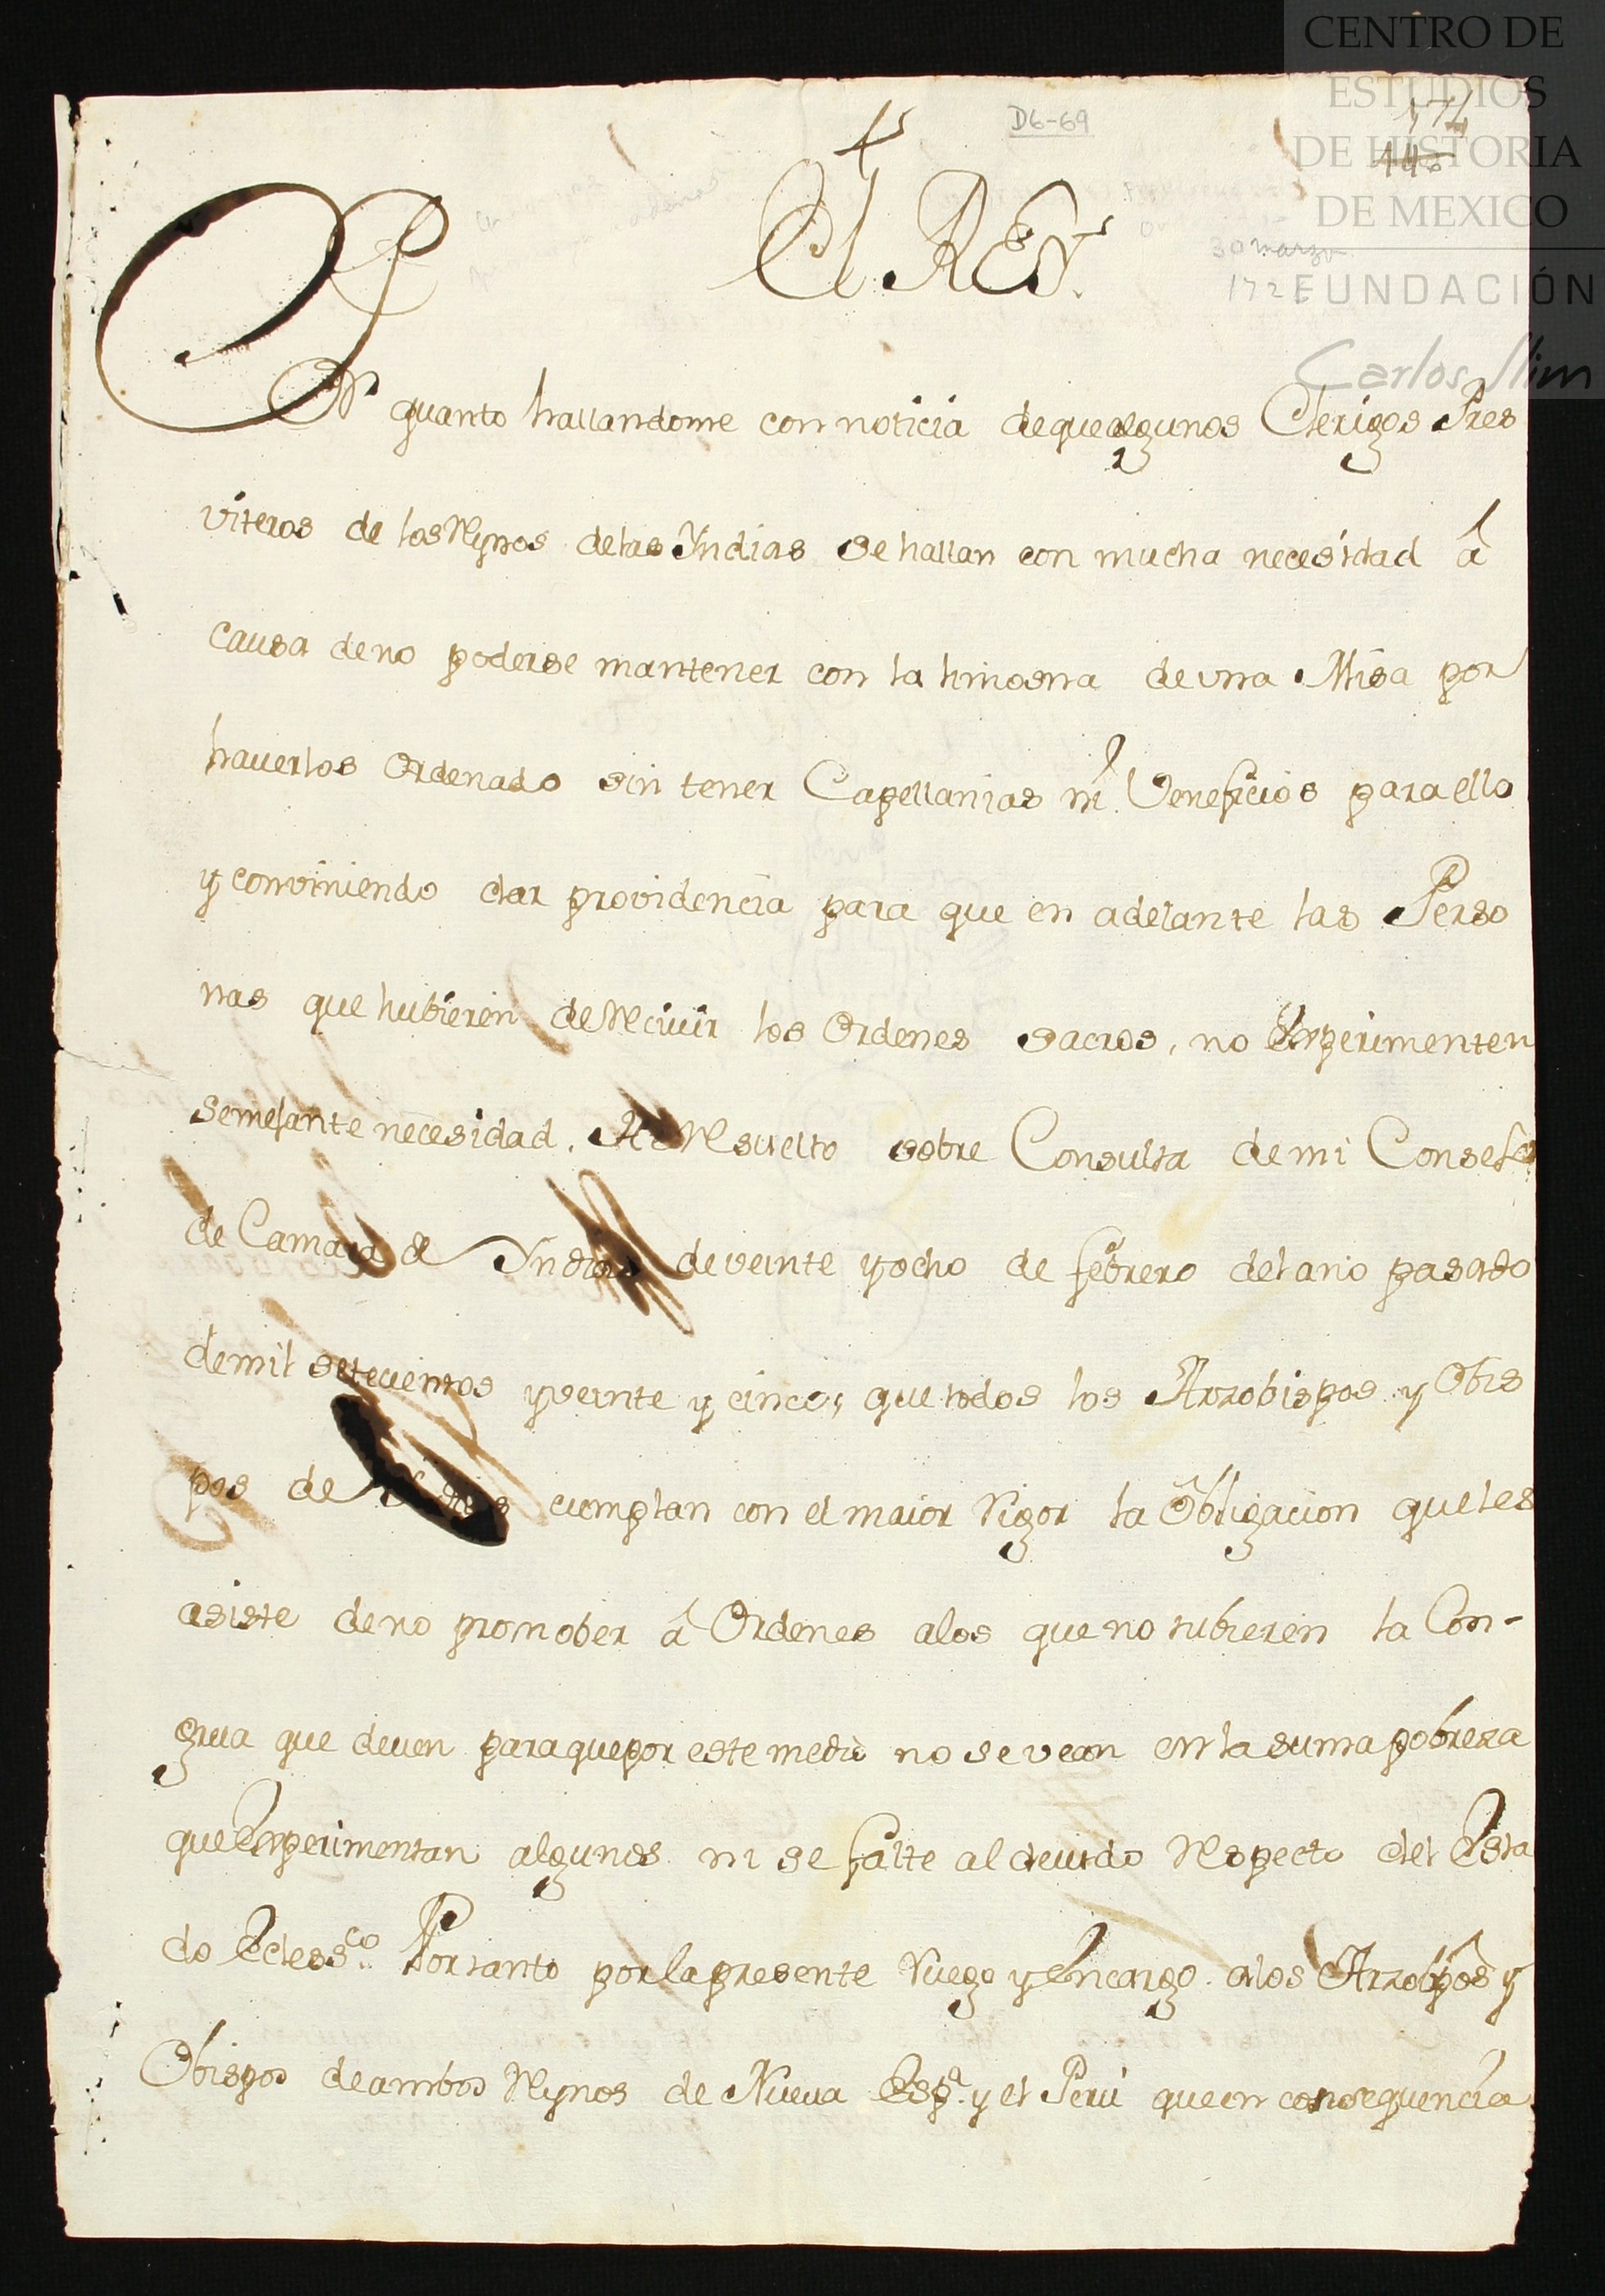 CENTRO DE
ESTUDIOS
DE HISTORIA
DE MEXICO
FUNDACIÓN
Carlos Slim
D6-69
30 marzo
El REY.
Por quanto hallandome con noticia de que algunos Clerigos Pres
viteros de los Rynos delas Yndias se hallan con mucha necesidad â
causa de no poderse mantener con la limosna de vna Misa por
hauerlos Ordenado sin tener Capellanias ni Veneficios para ello
y conviniendo dar providencia para que en adelante las Perso
nas que hubieren de Recivir los Ordenes sacros, no Experimenten
semejante necesidad. He Resuelto sobre Consulta de mi Consejo
de Camara de Yndias de veinte y ocho de febrero del año pasado
de mil setecientos y veinte y cinco, que todos los Arzobispos y Obis
pos de Yndias cumplan con el maior Rigor la Obligacion que les
asiste de no promober â Ordenes alos que no tubieren la Con-
grua que deuen para que por este medio no se vean en la suma pobreza
que Experimentan algunos ni se falte al deuido Respecto del Esta
do Ecless.co Por tanto por la presente Ruego y Encargo alos Arzobpos y
Obispos de ambos Rynos de Nueua Esp.a y el Perú que en consequencia